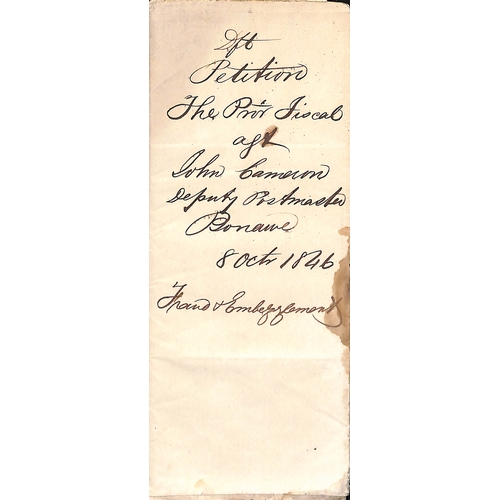 Dft
Petition
The Pror Fiscal
agt
John Cameron
Deputy Postmaster
Bonawe
8 Octr 1846
Fraud & Embezzlement